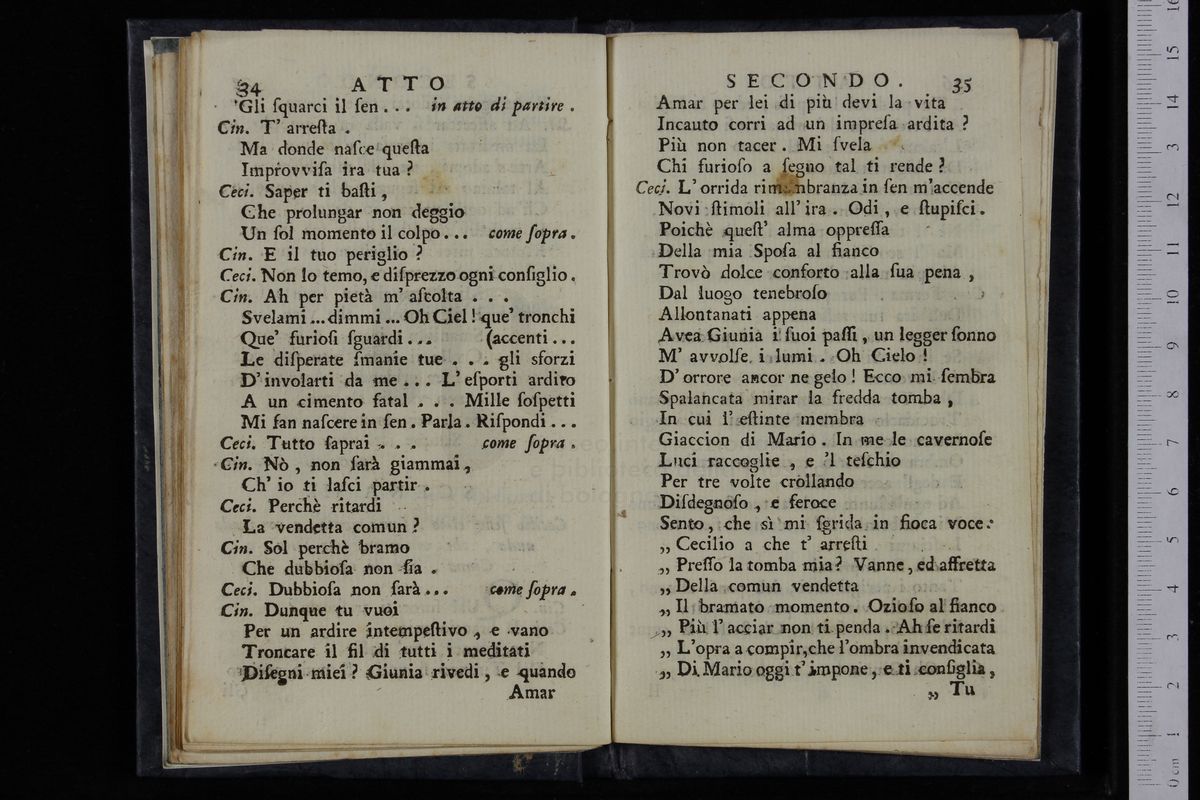 34 ATTO
'Gli ſquarci il ſen . . . in atto di partire .
Cin. T' arreſta .
Ma donde naſce queſta
Improvviſa ira tua ?
Ceci. Saper ti baſti ,
Che prolungar non deggio
Un ſol momento il colpo... come ſopra .
Cin. E il tuo periglio ?
Ceci. Non lo temo, e diſprezzo ogni conſiglio .
Cin. Ah per pietà m' aſcolta . . .
Svelami ... dimmi ... Oh Ciel ! que' tronchi
Que' furioſi ſguardi ... (accenti ...
Le diſperate ſmanie tue . . . gli sforzi
D' involarti da me ... L' eſporti ardito
A un cimento fatal . . . Mille ſoſpetti
Mi fan naſcere in ſen . Parla . Riſpondi ...
Ceci. Tutto ſaprai . . . come ſopra .
Cin. Nò , non ſarà giammai ,
Ch' io ti laſci partir .
Ceci. Perchè ritardi
La vendetta comun ?
Cin. Sol perchè bramo
Che dubbioſa non ſia .
Ceci. Dubbioſa non ſarà ... come ſopra .
Cin. Dunque tu vuoi
Per un ardire intempeſtivo , e vano
Troncare il fil di tutti i meditati
Diſegni miei ? Giunia rivedi , e quando
Amar
SECONDO. 35
Amar per lei di più devi la vita
Incauto corri ad un impreſa ardita ?
Più non tacer . Mi ſvela
Chi furioſo a ſegno tal ti rende ?
Ceci. L' orrida in ſen m'accende
Novi ſtimoli all' ira . Odi , e ſtupiſci .
Poichè queſt' alma oppreſſa
Della mia Spoſa al fianco
Trovò dolce conforto alla ſua pena ,
Dal luogo tenebroſo
Allontanati appena
Avea Giunia i ſuoi paſſi , un legger ſonno
M' avvolſe i lumi . Oh Cielo !
D' orrore ancor ne gelo ! Ecco mi ſembra
Spalancata mirar la fredda tomba ,
In cui l' eſtinte membra
Giaccion di Mario . In me le cavernoſe
Luci raccoglie , e 'l teſchio
Per tre volte crollando
Diſdegnoſo , e feroce
Sento , che sì mi ſgrida in fioca voce :
„ Cecilio a che t' arreſti
„ Preſſo la tomba mia ? Vanne , ed affretta
„ Della comun vendetta
„ Il bramato momento . Ozioſo al fianco
„ Più l' acciar non ti penda . Ah ſe ritardi
„ L'opra a compir, che l'ombra invendicata
„ Di Mario oggi t' impone , e ti conſiglia ,
„ Tu